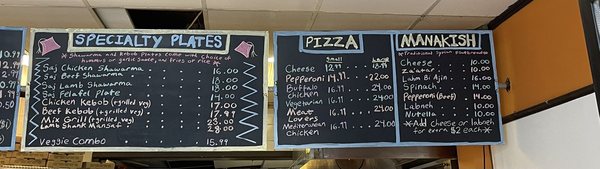 SPECIALTY PLATES
* Shawarma and Kebob Plates come with choice of
hummus or garlic sauce, and fries or rice *
Saj Chicken Shawarma 16.00
Saj Beef Shawarma 18.00
Saj Lamb Shawarma 18.00
Saj Falafel Plate 14.00
Chicken Kebob (+grilled veg) 17.00
Beef Kebob (+grilled veg) 17.99
Mix Grill (+grilled veg) 25.00
Lamb Shank Mansaf 28.00
Veggie Combo 15.99
PIZZA
Small Large
Cheese 12.99 18.99
Pepperoni 14.11 22.00
Buffalo Chicken 16.11 24.00
Vegetarian 16.11 24.00
Meat Lovers 16.11 24.00
Mediterranean Chicken 16.11 24.00
MANAKISH
*Traditional Saj Flatbread*
Cheese 10.00
Za'atar 10.00
Lahm Bi Ajin 16.00
Spinach 14.00
Pepperoni (Beef) 14.00
Labneh 10.00
Nutella 10.00
*Add cheese or labneh
for extra $2 each*